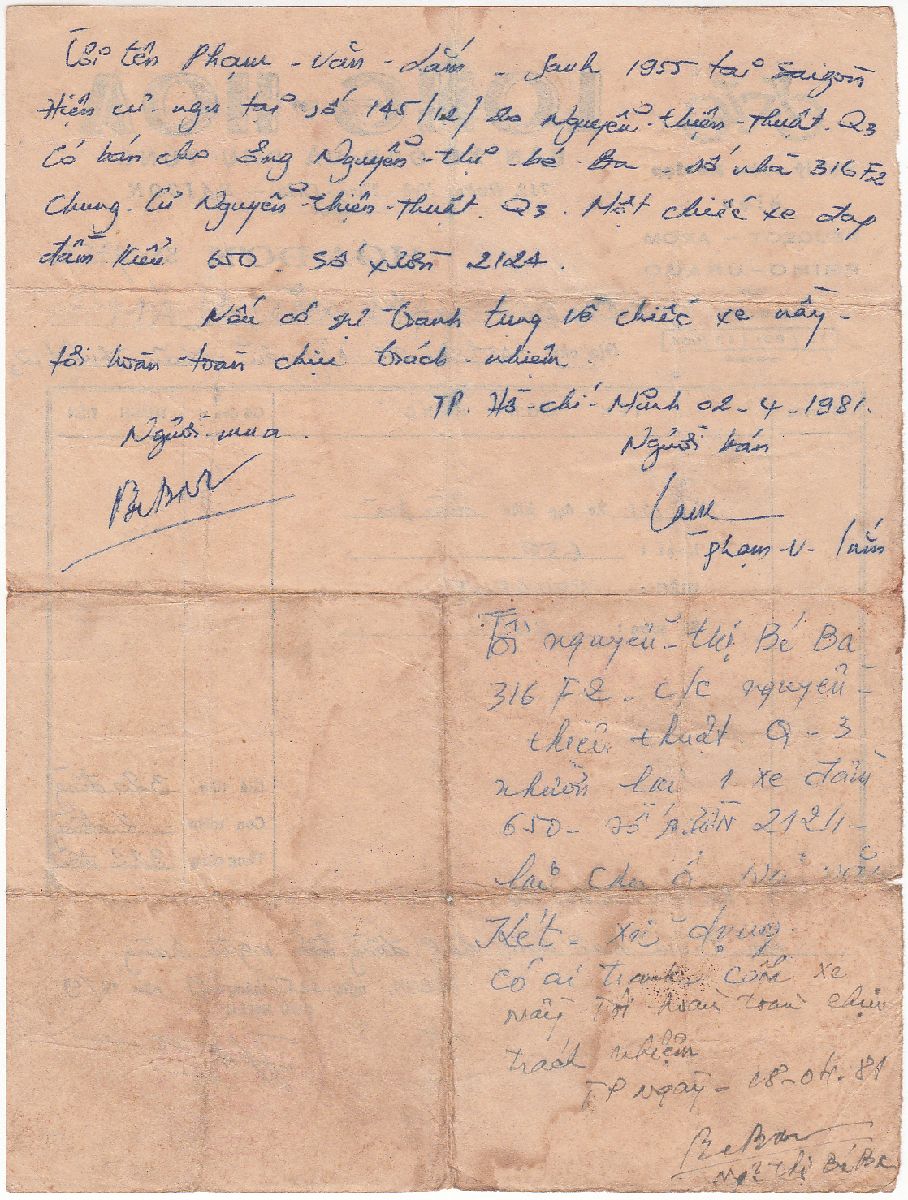 Tôi tên Phạm - Văn - Lắm - Sanh 1955 tại Saigon
Hiện cư ngụ tại số 145/12/ Nguyễn-Thiện-Thuật. Q3
Có bán cho Ông Nguyễn-thị bé Ba số nhà 316 F2
Chung cư Nguyễn-thiện-thuật. Q3. Một chiếc xe đạp
đầm kiểu 650. Số sườn 2124.
Nếu có sự tranh tụng về chiếc xe nầy-
tôi hoàn-toàn chịu trách-nhiệm
TP Hồ-chí-Minh 02-4-1981.
Người mua Người bán
BeBa
Phạm-V-Lắm
Tôi nguyễn-thị Bé Ba
316 F2 - c/c nguyễn-
thiện thuật Q-3
nhườn lại 1 xe đầm
650- số
lại cho
Kết - xử dụng
có ai tranh xe
nầy Tôi hoàn toàn chịu
trách nhiệm
TP ngày - 08-04-81
BeBa
Thị Bé Ba